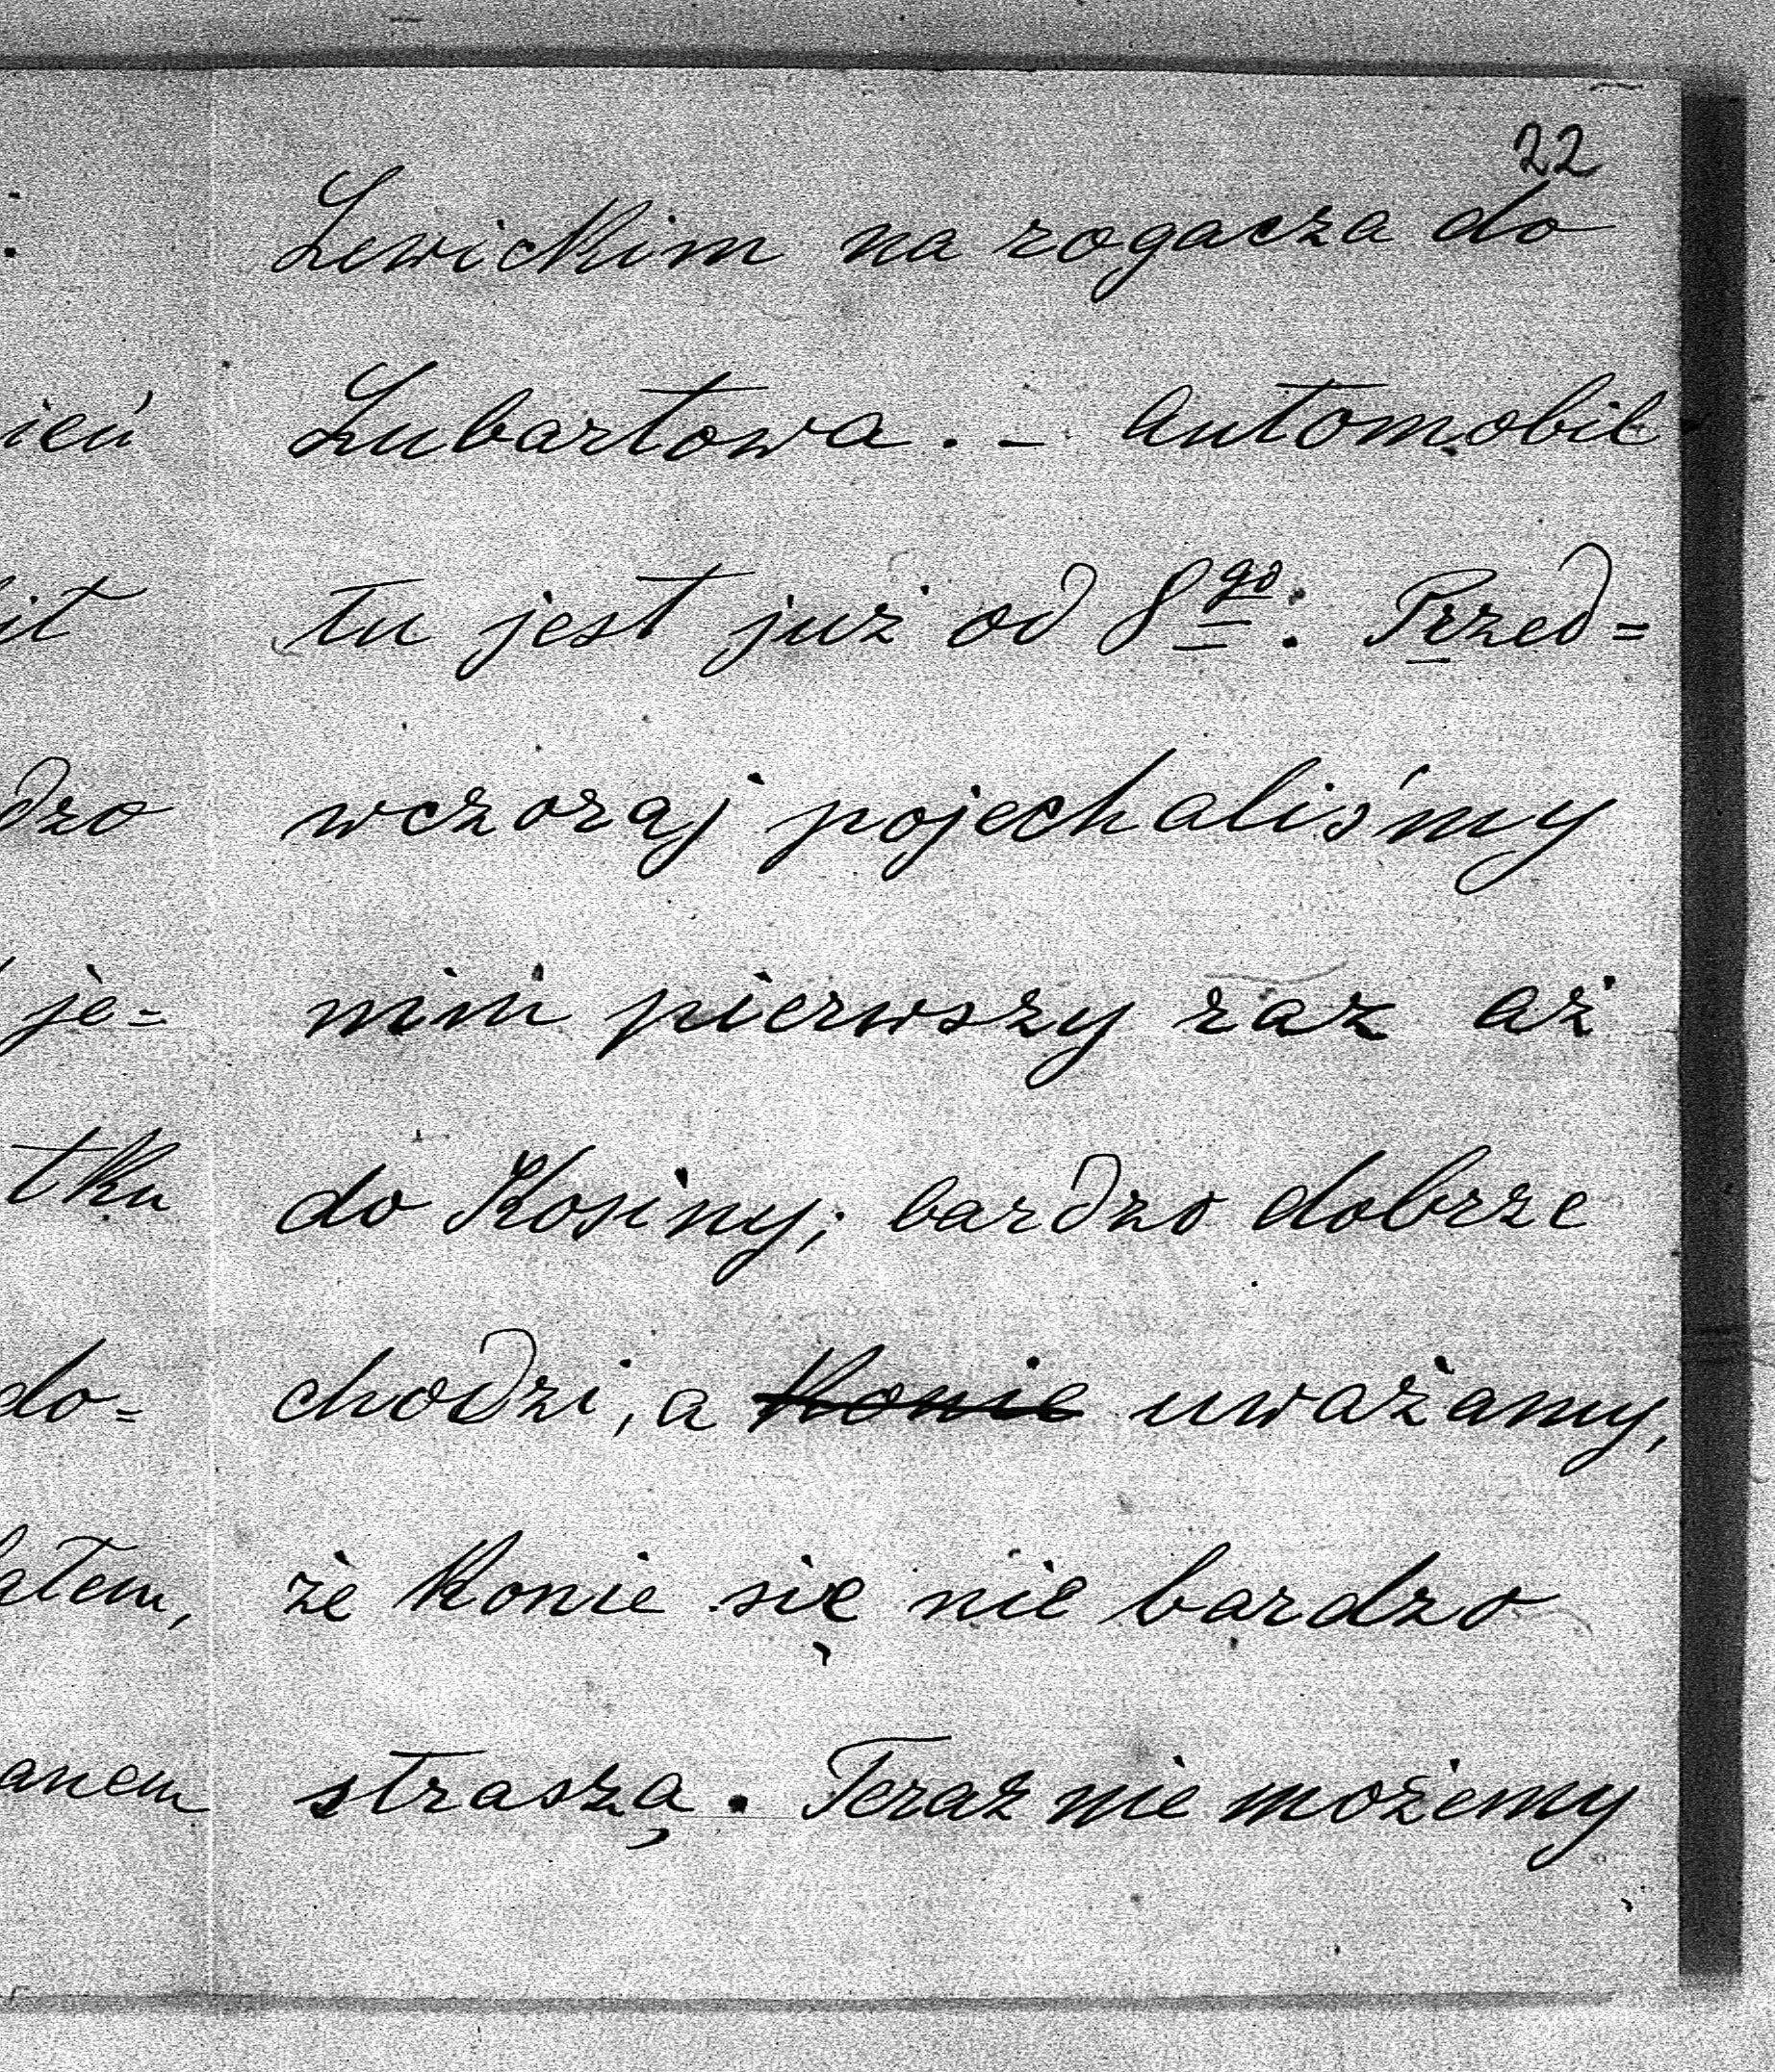 22
Lewickim na rogacza do
Lubartowa. - Automobil
tu jest już od 8go. Przed=
wczoraj pojechaliśmy
nim pierwszy raz aż
do Kosiny; bardzo dobrze
chodzi, a Konie uważamy,
że Konie się nie bardzo
straszą. Teraz nie możemy
ień
it
dzo
je=
tku
do=
atem,
anem